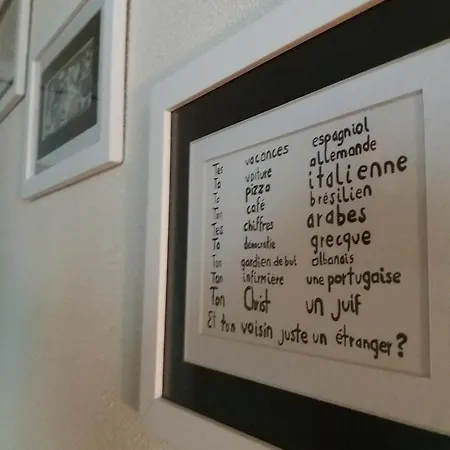 Tes vacances espagniol
Ta voiture allemande
Ta pizza italienne
Ton café brésilien
Tes chiffres arabes
Ta démocratie grecque
Ton gardien de but albanais
Ton infirmière une portugaise
Ton Christ un juif
Et ton voisin juste un étranger?